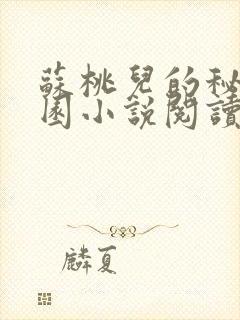 蘇桃兒的秘
園小說閱讀
麟夏